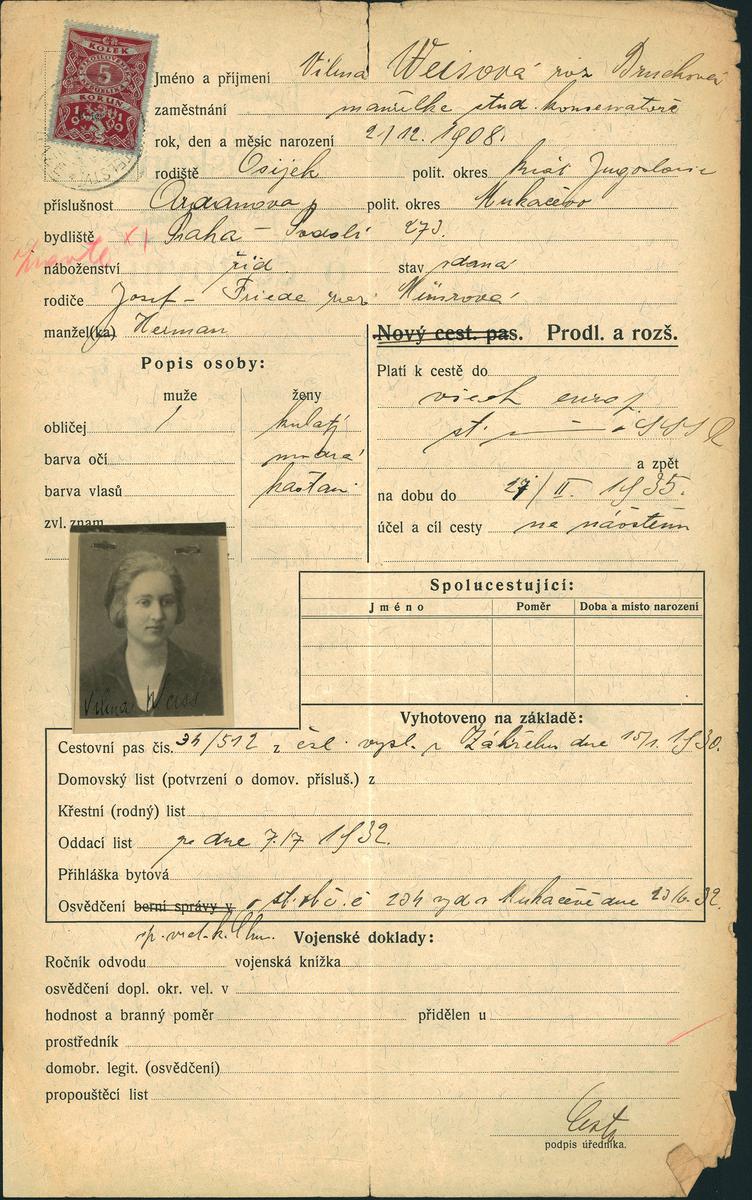 ČR
KOLEK
5
KORUN
Jméno a příjmení Vilma Weisová roz. Brucková
zaměstnání manželka stud. konservatoře
rok, den a měsíc narození 2/12. 1908.
rodiště Osijek polit. okres král. Jugoslavie
příslušnost Ardanovo polit. okres Mukačevo
bydliště Praha – Podolí 273.
XI
náboženství žid. stav vdaná
rodiče Josef – Friede roz.
manžel(ka) Herman
Nový cest. pas. Prodl. a rozš.
Popis osoby:
Platí k cestě do
muže ženy
všech evrop.
obličej kulatý
st. SSSR
barva očí modrá
a zpět
barva vlasů kaštan.
na dobu do 17/II. 1935.
zvl. znam.
účel a cíl cesty na návštěvu
Spolucestující:
Jméno Poměr Doba a místo narození
Vilma Weiss
Vyhotoveno na základě:
Cestovní pas čís. 34/512 z čsl. vysl. v Záhřebu dne 15/1. 1930.
Domovský list (potvrzení o domov. přísluš.) z
Křestní (rodný) list
Oddací list ze dne 7. 1932.
Přihláška bytová
Osvědčení berní správy v o st. obč. č 204 vyd v Mukačevě dne 1932.
Vojenské doklady:
Ročník odvodu vojenská knížka
osvědčení dopl. okr. vel. v
hodnost a branný poměr přidělen u
prostředník
domobr. legit. (osvědčení)
propouštěcí list
podpis úředníka.